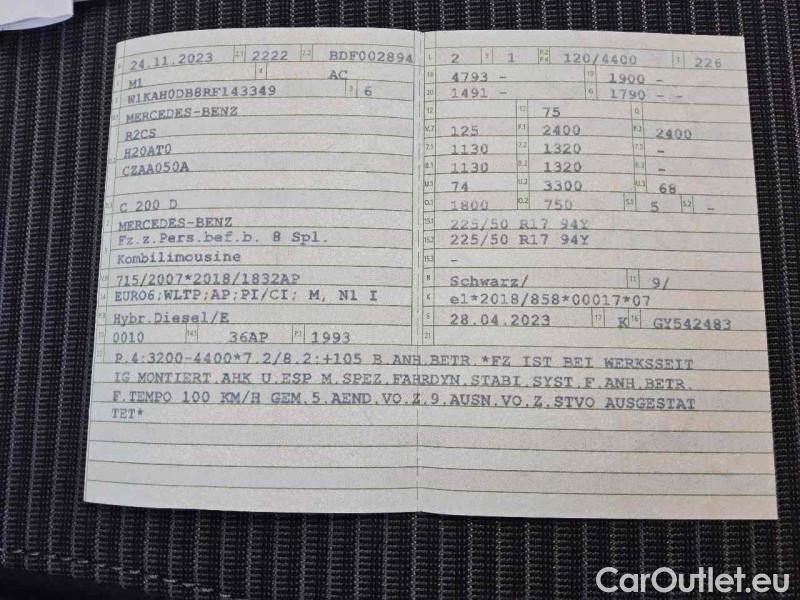 B 24.11.2023 2.1 2222 2.2 BDF002894
J M1 4 AC
E W1KAH0DB8RF143349 3 6
D.1 MERCEDES-BENZ
R2CS
D.2 H20AT0
CZAA050A
D.3 C 200 D
2 MERCEDES-BENZ
5 Fz.z.Pers.bef.b. 8 Spl.
Kombilimousine
V.9 715/2007*2018/1832AP
14 EURO6;WLTP;AP;PI/CI; M, N1 I
P.3 Hybr.Diesel/E
10 0010 14.1 36AP P.1 1993
L 2 9 1 P.2 P.4 120/4400 T 226
18 4793 - 19 1900 -
20 1491 - G 1790 - -
12 13 75 Q
V.7 125 F.1 2400 F.2 2400
7.1 1130 7.2 1320 7.3 -
8.1 1130 8.2 1320 8.3 -
U.1 74 U.2 3300 U.3 68
O.1 1800 O.2 750 S.1 5 S.2 -
15.1 225/50 R17 94Y
15.2 225/50 R17 94Y
15.3 -
R Schwarz/ 11 9/
K e1*2018/858*00017*07
6 28.04.2023 17 K 16 GY542483
21
22 P.4:3200-4400*7.2/8.2:+105 B.ANH.BETR.*FZ IST BEI WERKSSEIT
IG MONTIERT.AHK U.ESP M.SPEZ.FAHRDYN.STABI.SYST.F.ANH.BETR.
F.TEMPO 100 KM/H GEM.5.AEND.VO.Z.9.AUSN.VO.Z.STVO AUSGESTAT
TET*
CarOutlet.eu